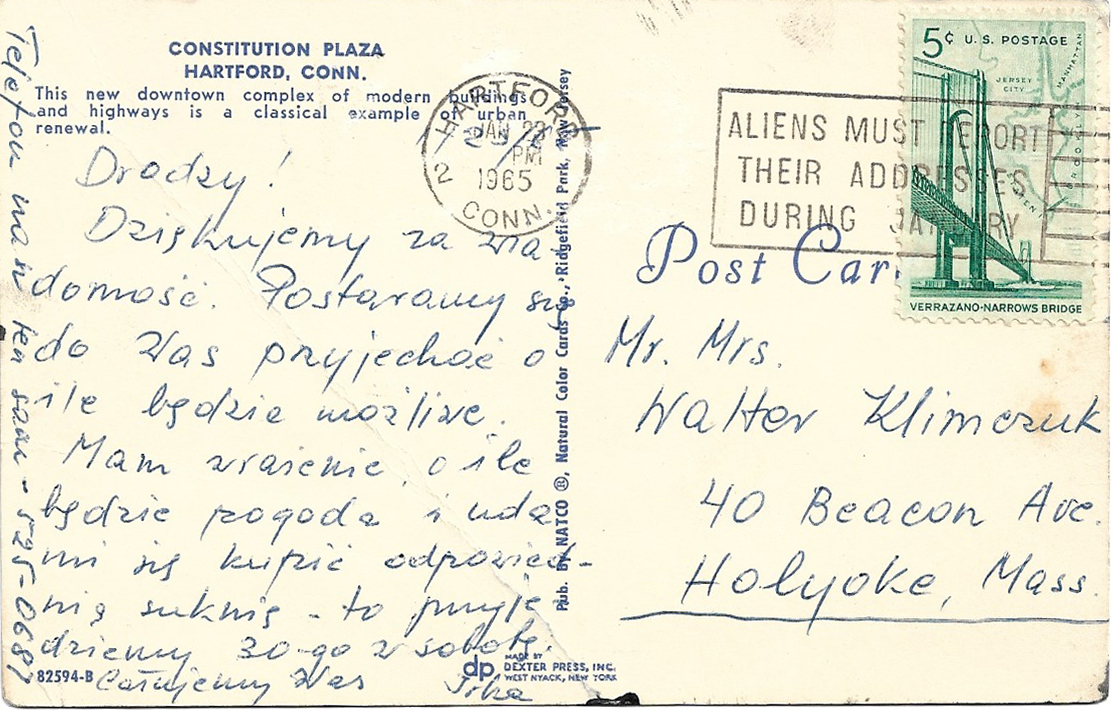 CONSTITUTION PLAZA
HARTFORD, CONN.
This new downtown complex of modern buildings
and highways is a classical example of urban
renewal.
Drodzy!
Dziękujemy za wia
domość. Postaramy się
do Was przyjechać o
ile będzie możliwe.
Mam wrażenie, o ile
będzie pogoda i uda
mi się kupić odpowied-
nią suknię - to przyje
dziemy 30-go w sobotę.
Całujemy Was Irka
Telefon nasz ten sam - 525-0687
82594-B
dp MADE BY
DEXTER PRESS, INC.
WEST NYACK, NEW YORK
Pub. By NATCO ®, Natural Color Cards Co., Ridgefield Park, New Jersey
HARTFORD
JAN 23
PM
2 1965
CONN.
ALIENS MUST REPORT
THEIR ADDRESSES
DURING JANUARY
5¢ U.S. POSTAGE
MANHATTAN
JERSEY
CITY
BROOKLYN
VERRAZANO-NARROWS BRIDGE
Post Card
Mr. Mrs.
Walter Klimczuk
40 Beacon Ave.
Holyoke, Mass.